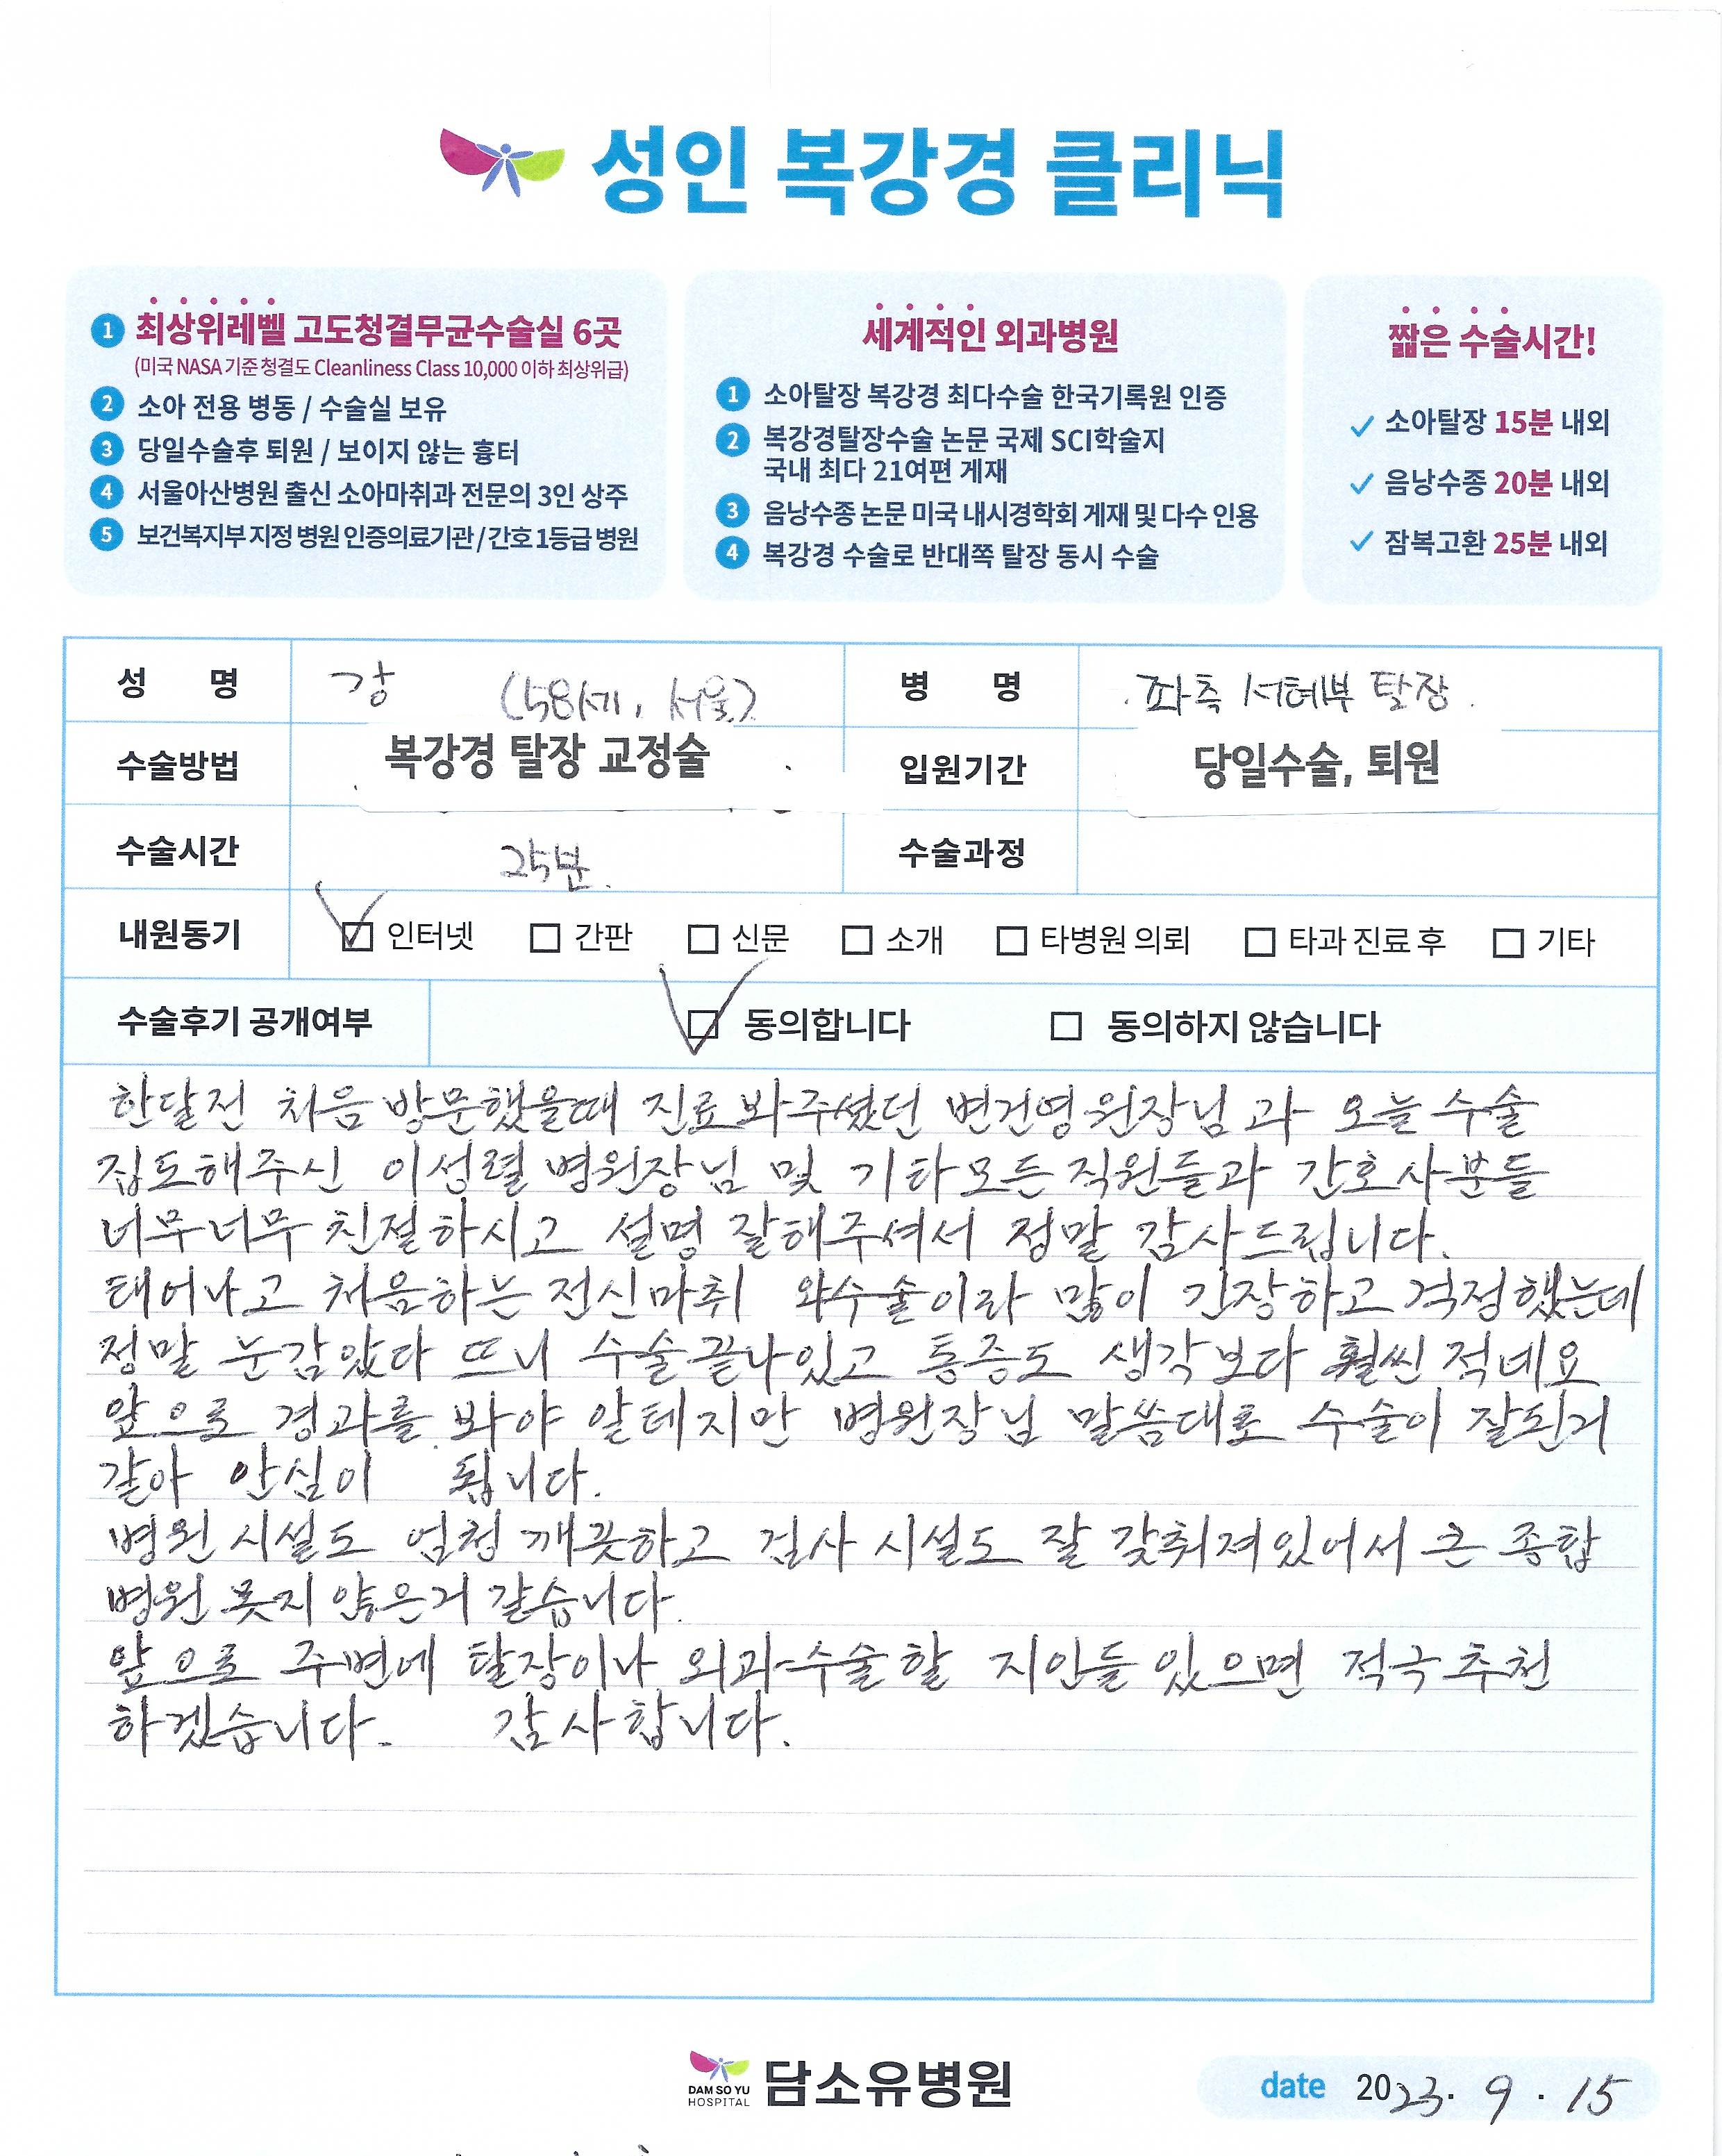 성인 복강경 클리닉
1 최상위레벨 고도청결무균수술실 6곳
(미국 NASA 기준 청결도 Cleanliness Class 10,000 이하 최상위급)
2 소아 전용 병동 / 수술실 보유
3 당일수술후 퇴원 / 보이지 않는 흉터
4 서울아산병원 출신 소아마취과 전문의 3인 상주
5 보건복지부 지정 병원 인증의료기관 / 간호 1등급 병원
세계적인 외과병원
1 소아탈장 복강경 최다수술 한국기록원 인증
2 복강경탈장수술 논문 국제 SCI학술지
국내 최다 21여편 게재
3 음낭수종 논문 미국 내시경학회 게재 및 다수 인용
4 복강경 수술로 반대쪽 탈장 동시 수술
짧은 수술시간!
✓ 소아탈장 15분 내외
✓ 음낭수종 20분 내외
✓ 잠복고환 25분 내외
성 명 강 (58세, 서울) 병 명 좌측 서혜부 탈장.
수술방법 복강경 탈장 교정술 입원기간 당일수술, 퇴원
수술시간 25분. 수술과정
내원동기 ☑ 인터넷 □ 간판 □ 신문 □ 소개 □ 타병원 의뢰 □ 타과 진료 후 □ 기타
수술후기 공개여부 ☑ 동의합니다 □ 동의하지 않습니다
한달전 처음 방문했을때 진료봐주셨던 변건영원장님과 오늘 수술
집도해주신 이성렬 병원장님 및 기타모든 직원들과 간호사분들
너무너무 친절하시고 설명 잘해주셔서 정말 감사드립니다.
태어나고 처음하는 전신마취 와수술이라 많이 긴장하고 걱정했는데
정말 눈감았다 뜨니 수술끝나있고 통증도 생각보다 훨씬 적네요
앞으로 경과를 봐야 알테지만 병원장님 말씀대로 수술이 잘된거
같아 안심이 됩니다.
병원 시설도 엄청 깨끗하고 검사 시설도 잘 갖춰져있어서 큰 종합
병원 못지 않은거 같습니다.
앞으로 주변에 탈장이나 외과수술할 지인들 있으면 적극추천
하겠습니다. 감사합니다.
DAM SO YU
HOSPITAL
담소유병원
date 2023. 9. 15